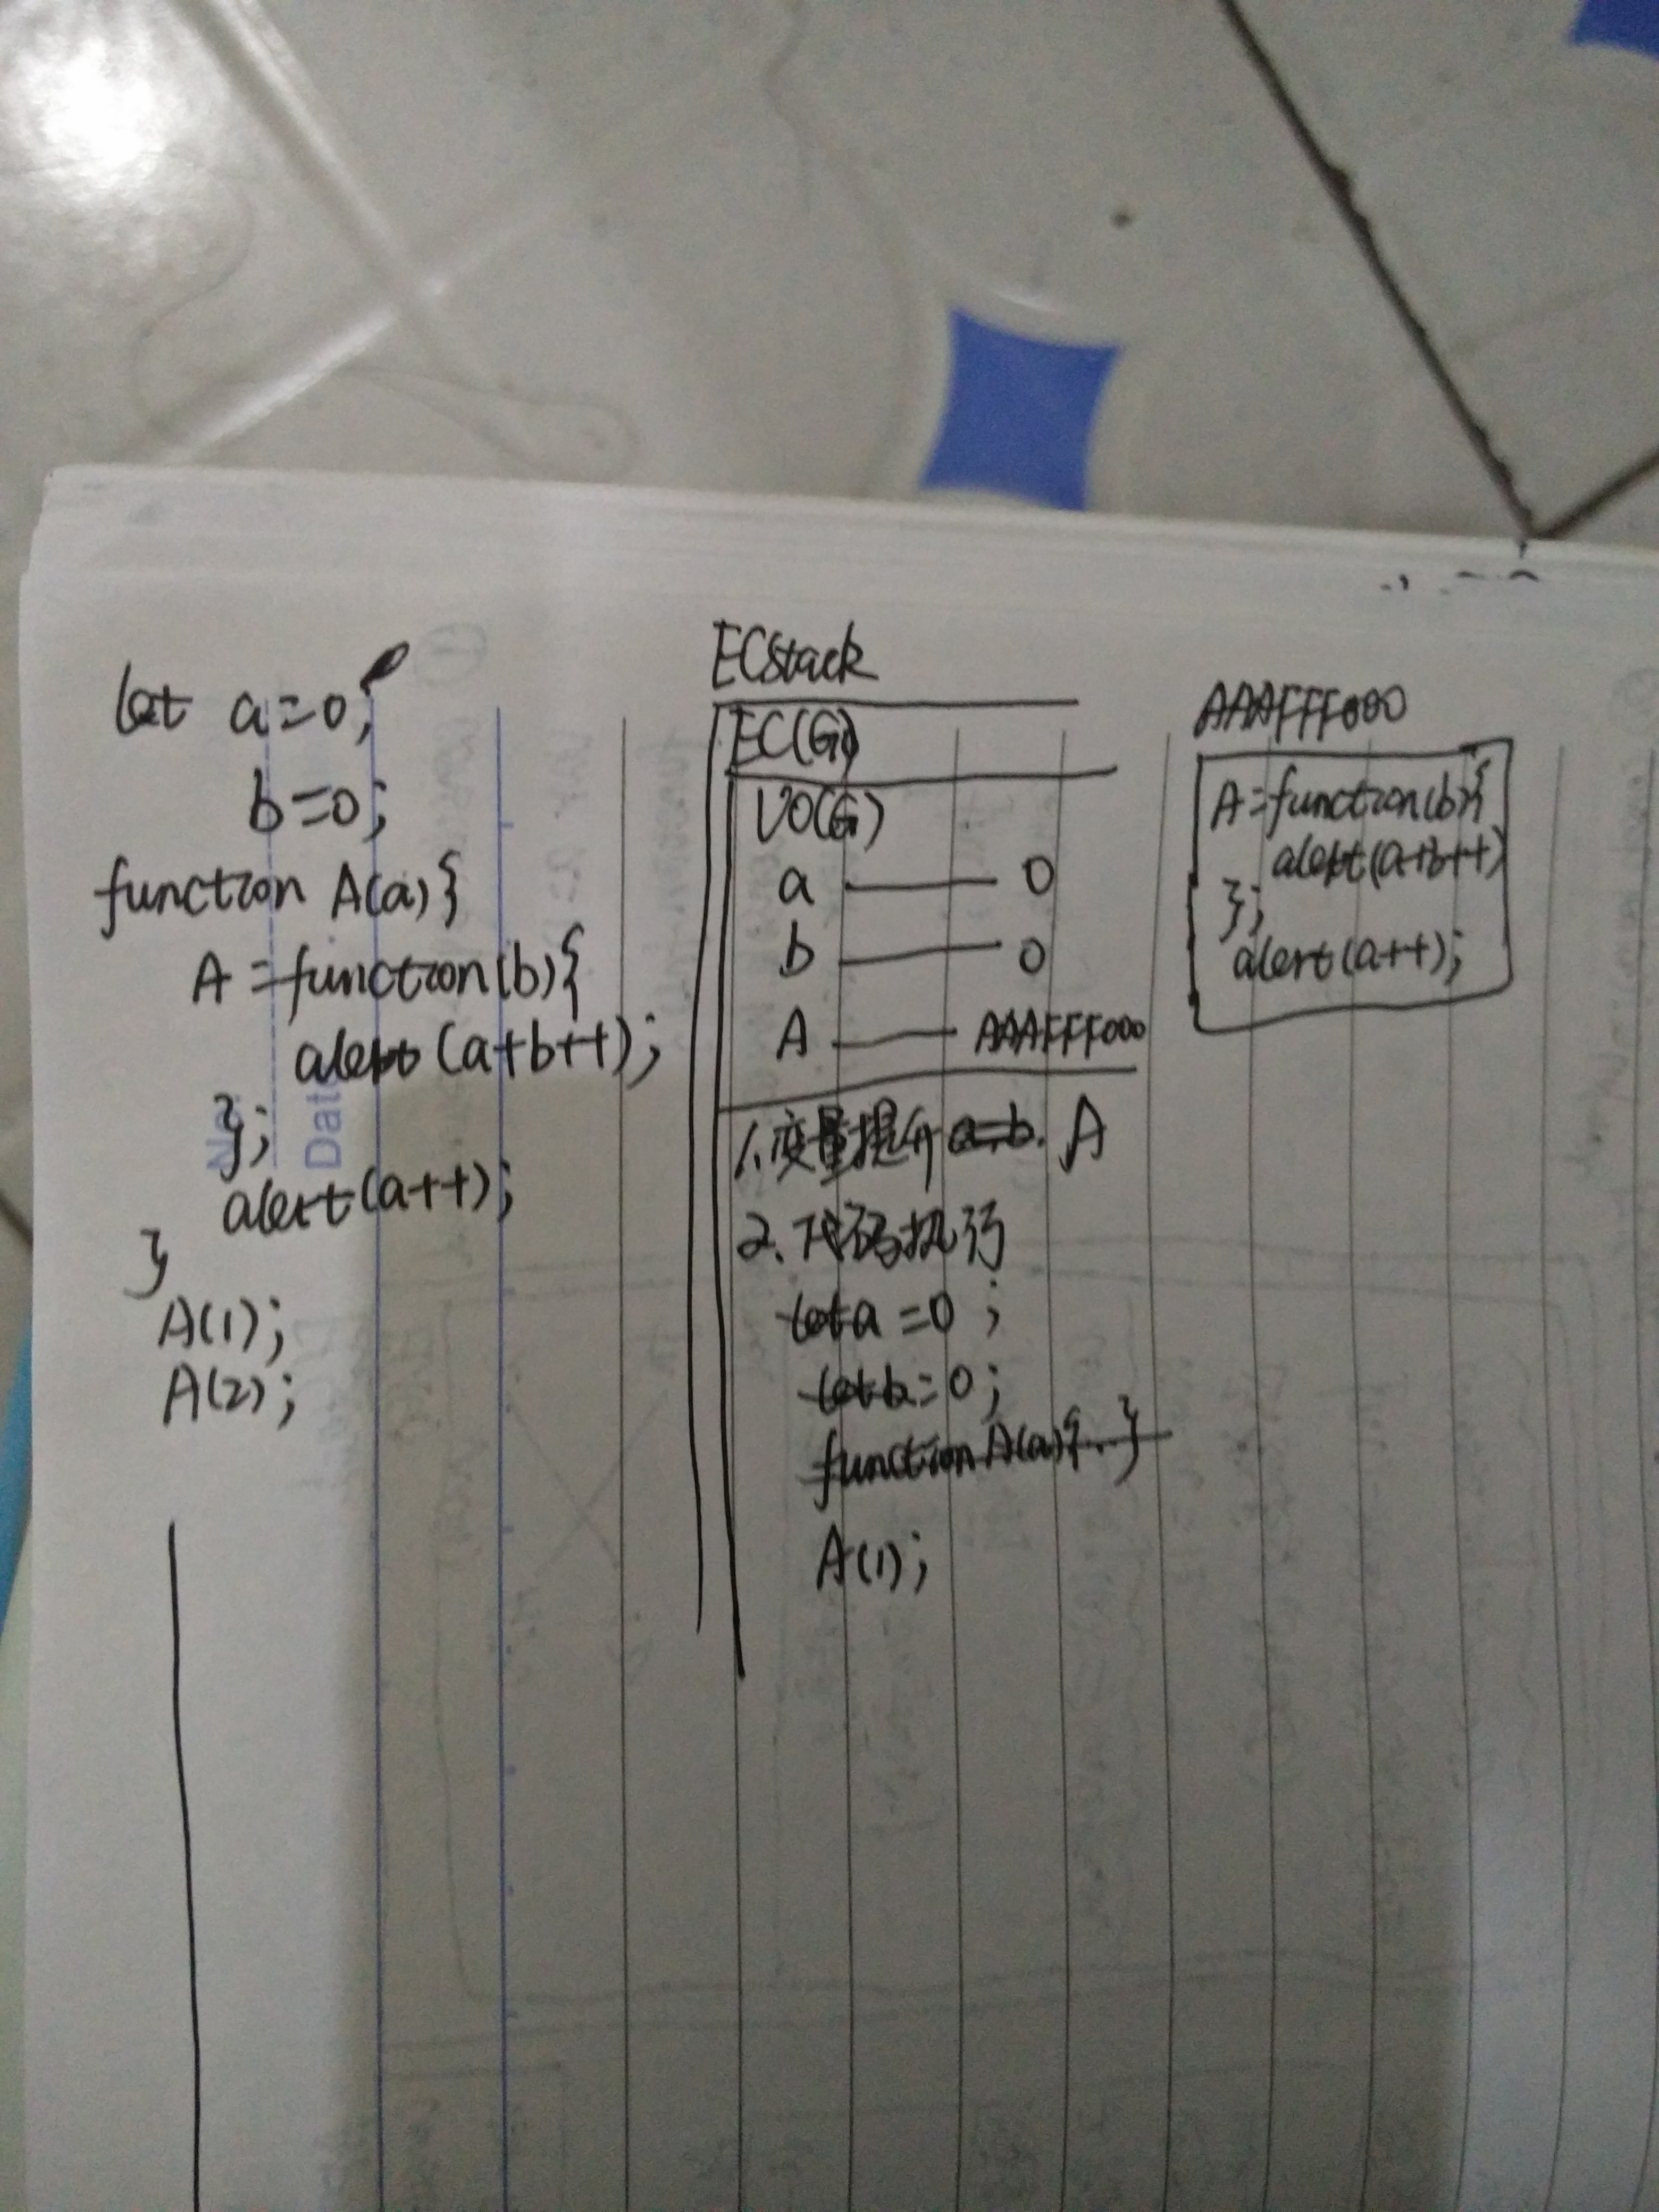 let a=0;
b=0;
function A(a){
A=function(b){
alert(a+b++);
};
alert(a++);
}
A(1);
A(2);
ECStack
EC(G)
VO(G)
a —— 0
b —— 0
A —— AAAFFF000
1.变量提升 a=b. A
2.代码执行
let a=0;
let b=0;
function A(a){..}
A(1);
AAAFFF000
A=function(b){
alert(a+b++)
};
alert(a++);
No.
Date